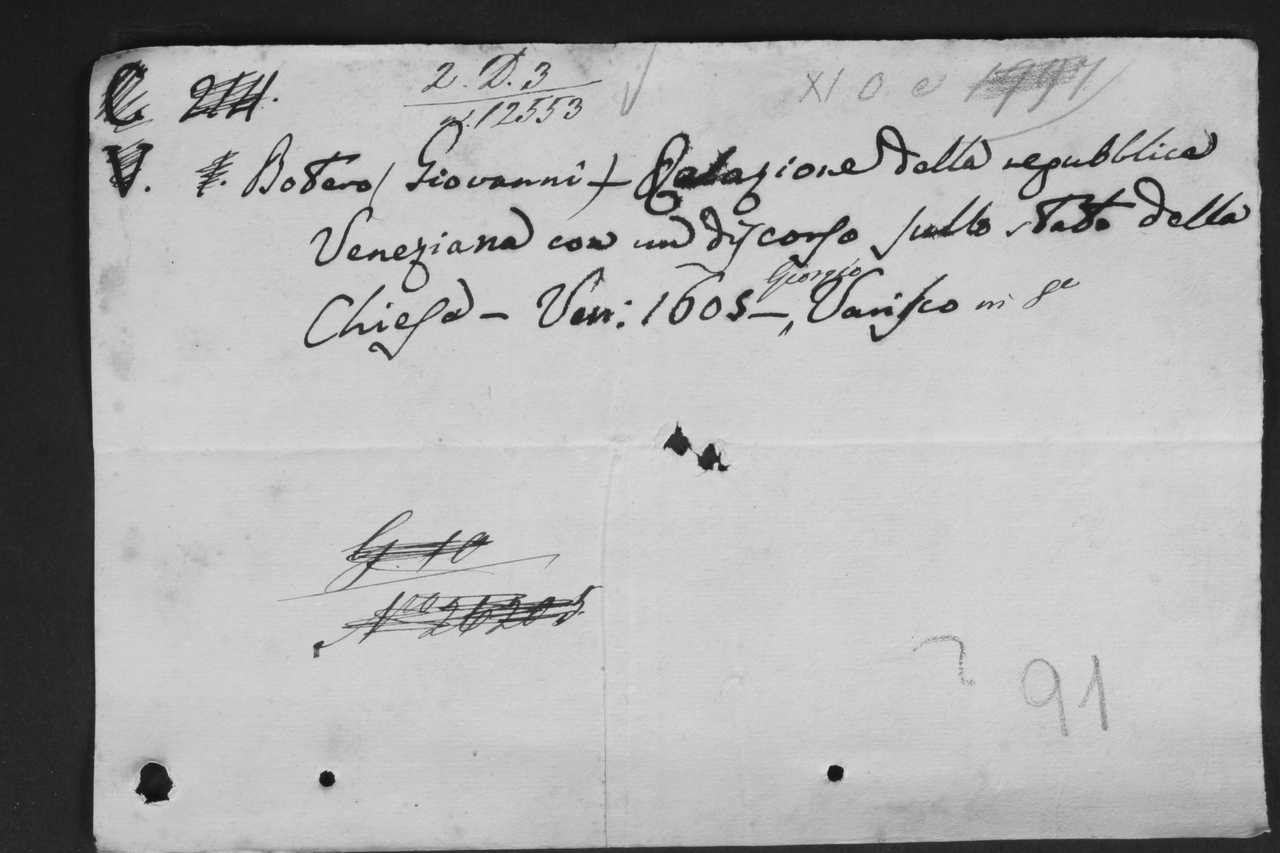 C. 214. 2. D. 3 XI O e 1997
n. 12553
V. Botero (Giovanni) Relazione della republica
Veneziana con un discorso sullo stato della
Chiesa – Ven: 1605 – Giorgio Varisco in 8°
G. 10
N.ro 26205
91